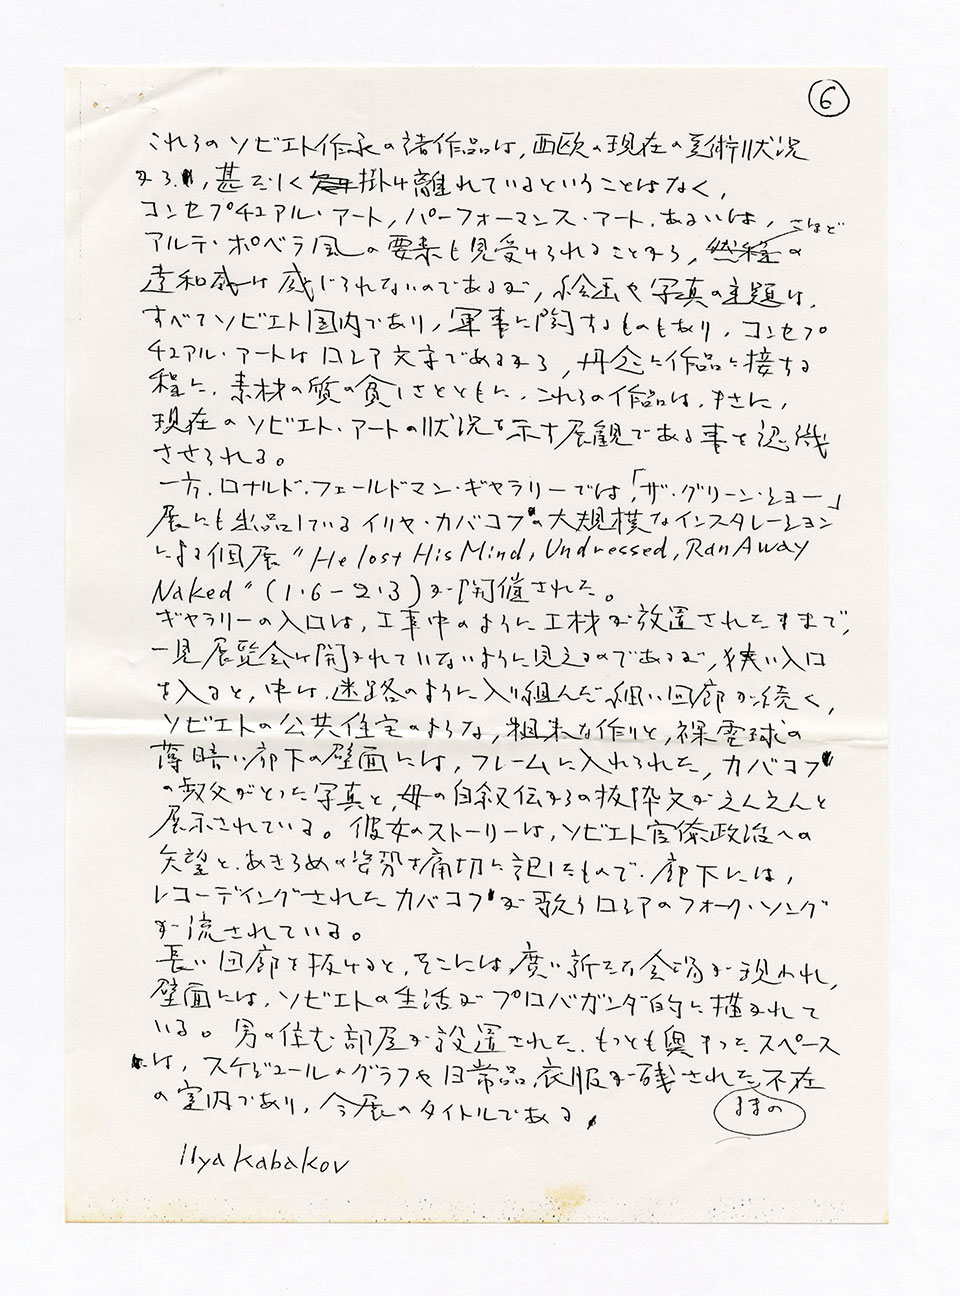 ⑥
これらのソビエト作家の諸作品は、西欧の現在の美術状況
から、甚だしく掛け離れているということはなく、
コンセプチュアル・アート、パーフォーマンス・アート、あるいは、
さほど
アルテ・ポベラ風の要素も見受けられることから、の
違和感は感じられないのであるが、絵画や写真の主題は、
すべてソビエト国内であり、軍事に関するものもあり、コンセプ
チュアル・アートはロシア文字であるから、丹念に作品に接する
程に、素材の質の貧しさとともに、これらの作品は、まさに、
現在のソビエト・アートの状況を示す展観である事を認識
させられる。
一方、ロナルド・フェールドマン・ギャラリーでは、「ザ・グリーン・ショー」
展にも出品しているイリヤ・カバコフの大規模なインスタレーション
による個展 "He lost His Mind, Undressed, Ran Away
Naked" (1・6-2・3)が開催された。
ギャラリーの入口は、工事中のように工材が放置されたままで、
一見展覧会は開かれていないように見えるのであるが、狭い入口
を入ると、中は、迷路のように入り組んだ細い回廊が続く、
ソビエトの公共住宅のような、粗末な作りと、裸電球の
薄暗い廊下の壁面には、フレームに入れられた、カバコフ
の叔父がとった写真と、母の自叙伝からの抜粋文がえんえんと
展示されている。彼女のストーリーは、ソビエト官僚政治への
失望と、あきらめの姿勢を痛切に記したもので、廊下には、
レコーディングされたカバコフが歌うロシアのフォーク・ソング
が流されている。
長い回廊を抜けると、そこには、広い新たな会場が現われ、
壁面には、ソビエトの生活がプロパガンダ的に描かれて
いる。男の住む部屋が設置された、もっとも奥まったスペース
は、スケジュールのグラフや日常品、衣服が残された不在
ままの
の室内であり、今展のタイトルである。
Ilya Kabakov